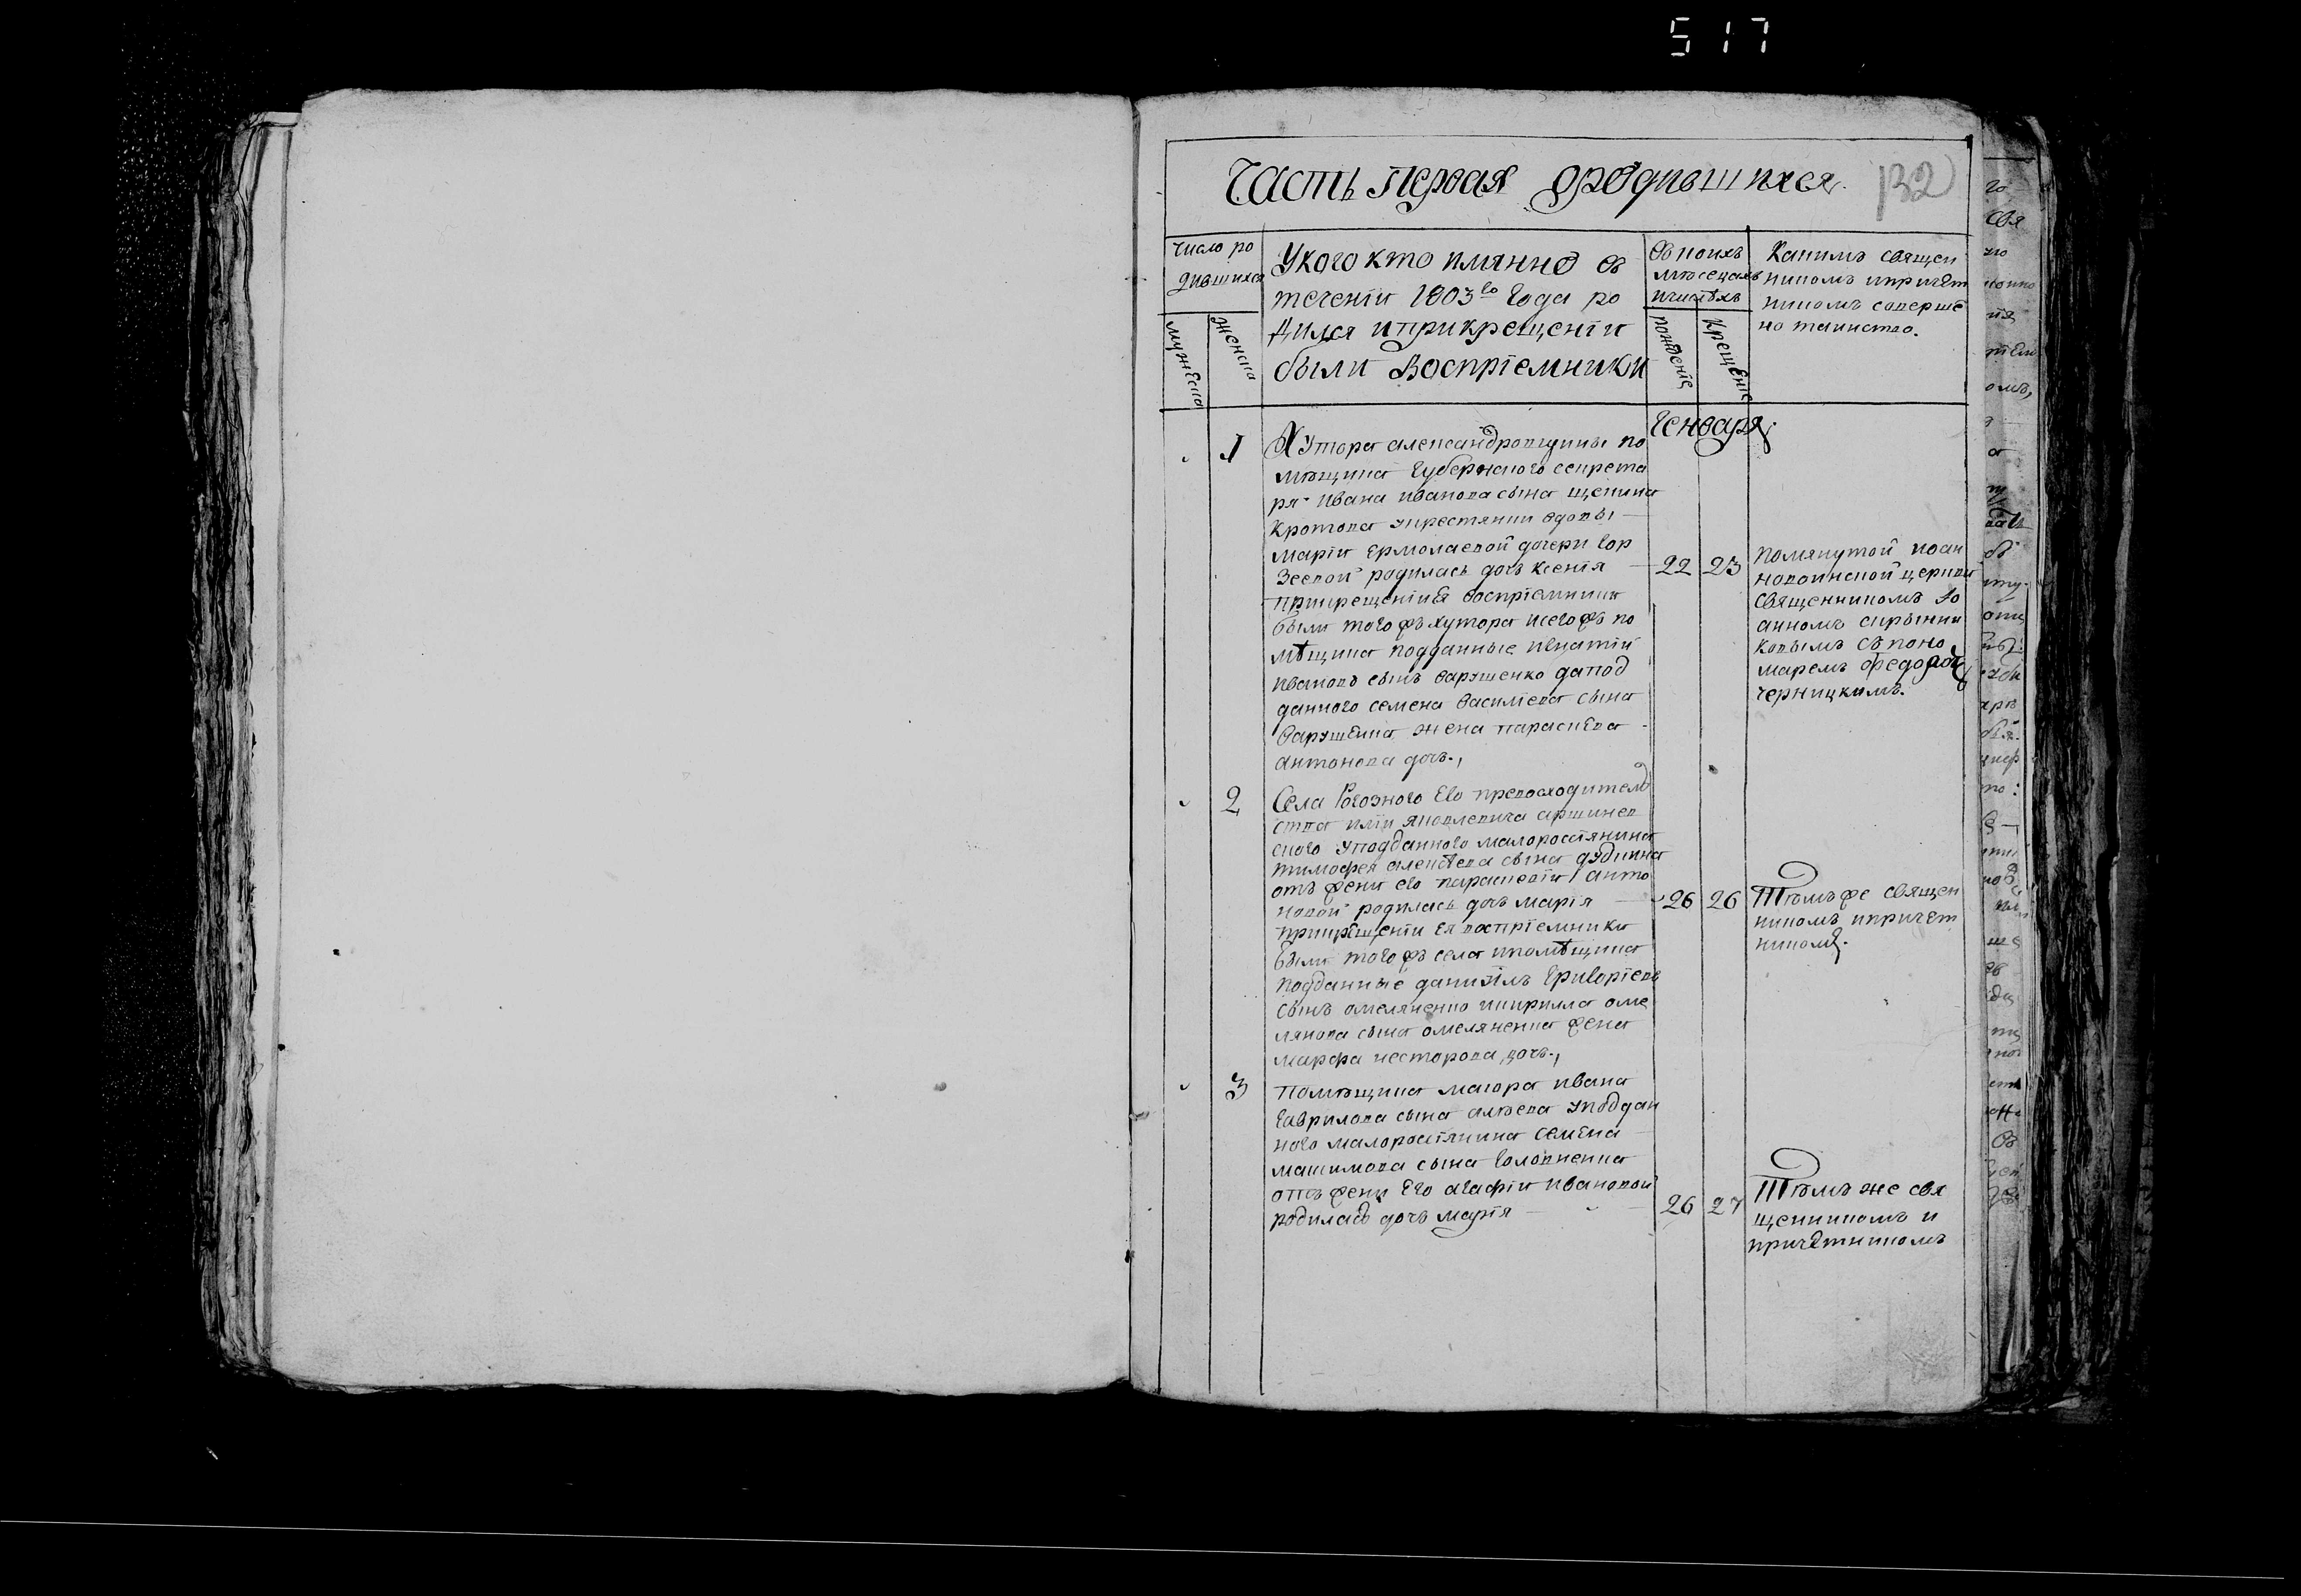 517
Часть Первая о родившихся.
132
Число ро
дившихся
Укого кто имянно в
течении 1803го Года ро
дился и при крещении
были Воспріемники
Вкоихъ
месецахъ
ичислѣхъ
Какимъ священ
никомъ ипричет
никомъ соверше
но таинство.
мужеска
женска
рожденіе
Крещеніе
Генваря
1
Хутора александровщины по
мѣщика Губернского секрета
ря ивана иванова сына щекина
Кротова укрестянки вдовы
маріи Ермолаевой дочери
родилась дочь ксенія
прикрещеніи Ея воспріемники
были того жъ хутора исего жъ по
мѣщика подданные игнатій
ивановъ сынъ варушенко да под
данного семена василіева сына
варушенка жена параскева
антонова дочь.,
22 23
помянутой иоан
новоинской церкви
священникомъ Іо
анномъ
съ поно
маремъ федоромъ
черницкимъ.
2
Села Рогозного Его превосходителъ
ства иліи яковлевича аршенев
ского уподданного малоросіянина
тимофея алексѣева сына
отъ жены его параскевіи анто
новой родилась дочь марія
прикрещеніи Ея воспріемники
были того жъ села ипомѣщика
подданные даніилъ Григоріевъ
сынъ омеляненко икирилла оме
лянова сына омеляненка жена
марфа несторова дочь.,
26 26
Тѣмъ же священ
никомъ ипричет
никомъ.
3
Помѣщика маіора ивана
Гаврилова сына алѣева уноддан
ного малоросіянина семена
максимова сына Головненка
отъ жены Его агафіи ивановой
родиласъ дочь марія
26 27
Тѣмъ же свя
щенникомъ и
причетникомъ